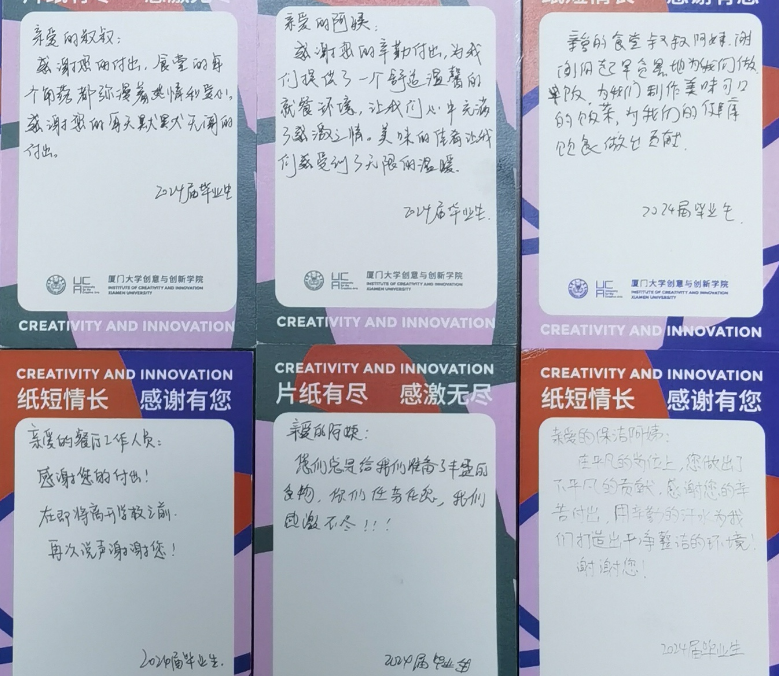 片纸有尽 感激无尽
亲爱的叔叔：
感谢您的付出，食堂的每
个角落都弥漫着热情和爱心。
感谢您的每天默默无闻的
付出。
2024届毕业生
厦门大学创意与创新学院
INSTITUTE OF CREATIVITY AND INNOVATION
XIAMEN UNIVERSITY
CREATIVITY AND INNOVATION
亲爱的阿姨：
感谢您的辛勤付出，为我
们提供了一个舒适温馨的
就餐环境，让我们心中充满
了感激之情。美味的佳肴让我
们感受到了无限的温暖。
2024届毕业生
厦门大学创意与创新学院
INSTITUTE OF CREATIVITY AND INNOVATION
XIAMEN UNIVERSITY
CREATIVITY AND INNOVATION
纸短情长 感谢有您
亲爱的食堂叔叔阿姨，谢
谢你们起早贪黑地为我们做
早饭，为我们制作美味可口
的饭菜，为我们的健康
饮食做出贡献。
2024届毕业生
厦门大学创意与创新学院
INSTITUTE OF CREATIVITY AND INNOVATION
XIAMEN UNIVERSITY
CREATIVITY AND INNOVATION
CREATIVITY AND INNOVATION
纸短情长 感谢有您
亲爱的餐厅工作人员：
感谢您的付出！
在即将离开学校之前
再次说声谢谢您！
2024届毕业生
CREATIVITY AND INNOVATION
片纸有尽 感激无尽
亲爱的阿姨：
你们总是给我们准备了丰盛的
食物，你们任劳任怨，我们
感激不尽！！！
2024届毕业生
CREATIVITY AND INNOVATION
纸短情长 感谢有您
亲爱的保洁阿姨：
在平凡的岗位上，您做出了
不平凡的贡献，感谢您的辛
苦付出，用辛勤的汗水为我
们打造出干净整洁的环境！
谢谢您！
2024届毕业生